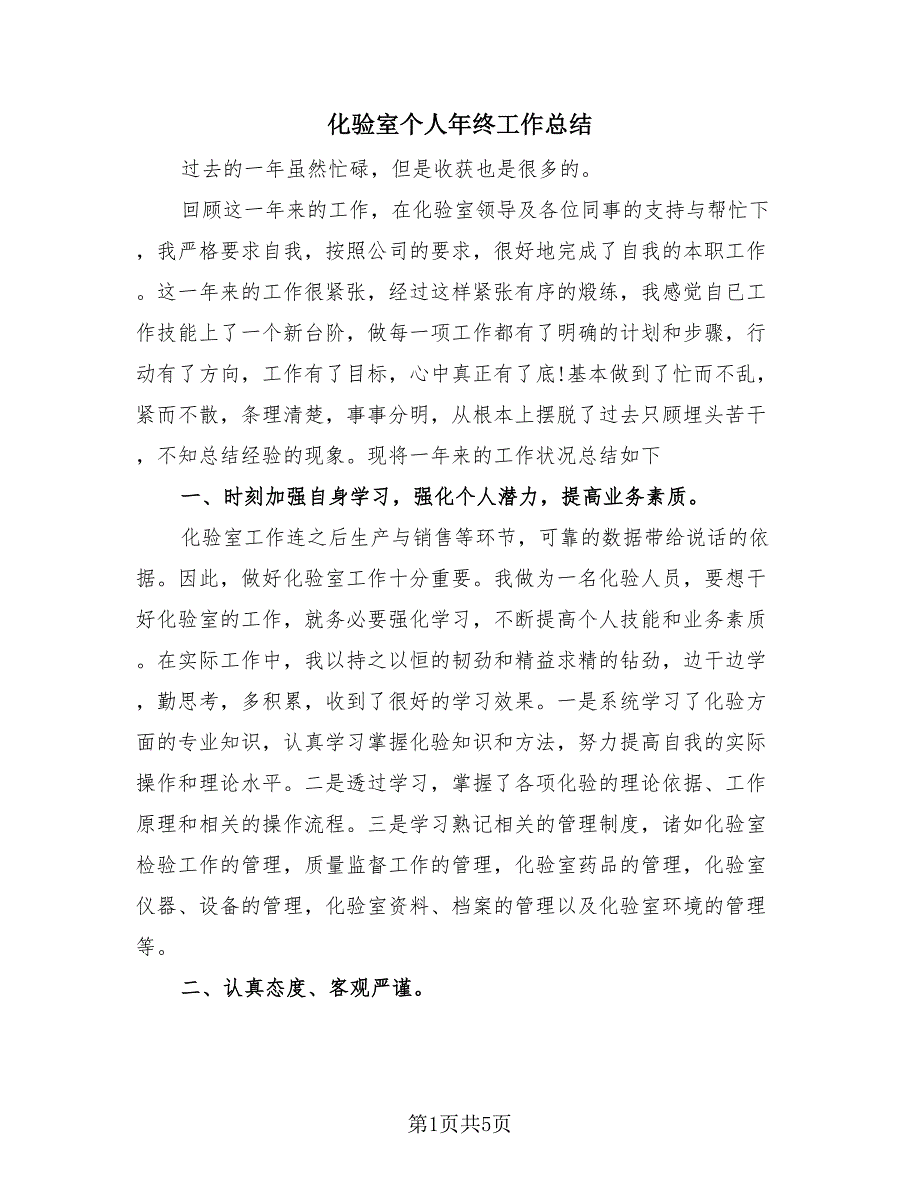 化验室个人年终工作总结
过去的一年虽然忙碌，但是收获也是很多的。
回顾这一年来的工作，在化验室领导及各位同事的支持与帮忙下
，我严格要求自我，按照公司的要求，很好地完成了自我的本职工作
。这一年来的工作很紧张，经过这样紧张有序的煅练，我感觉自己工
作技能上了一个新台阶，做每一项工作都有了明确的计划和步骤，行
动有了方向，工作有了目标，心中真正有了底!基本做到了忙而不乱，
紧而不散，条理清楚，事事分明，从根本上摆脱了过去只顾埋头苦干
，不知总结经验的现象。现将一年来的工作状况总结如下
一、时刻加强自身学习，强化个人潜力，提高业务素质。
化验室工作连之后生产与销售等环节，可靠的数据带给说话的依
据。因此，做好化验室工作十分重要。我做为一名化验人员，要想干
好化验室的工作，就务必要强化学习，不断提高个人技能和业务素质
。在实际工作中，我以持之以恒的韧劲和精益求精的钻劲，边干边学
，勤思考，多积累，收到了很好的学习效果。一是系统学习了化验方
面的专业知识，认真学习掌握化验知识和方法，努力提高自我的实际
操作和理论水平。二是透过学习，掌握了各项化验的理论依据、工作
原理和相关的操作流程。三是学习熟记相关的管理制度，诸如化验室
检验工作的管理，质量监督工作的管理，化验室药品的管理，化验室
仪器、设备的管理，化验室资料、档案的管理以及化验室环境的管理
等。
二、认真态度、客观严谨。
第1页共5页